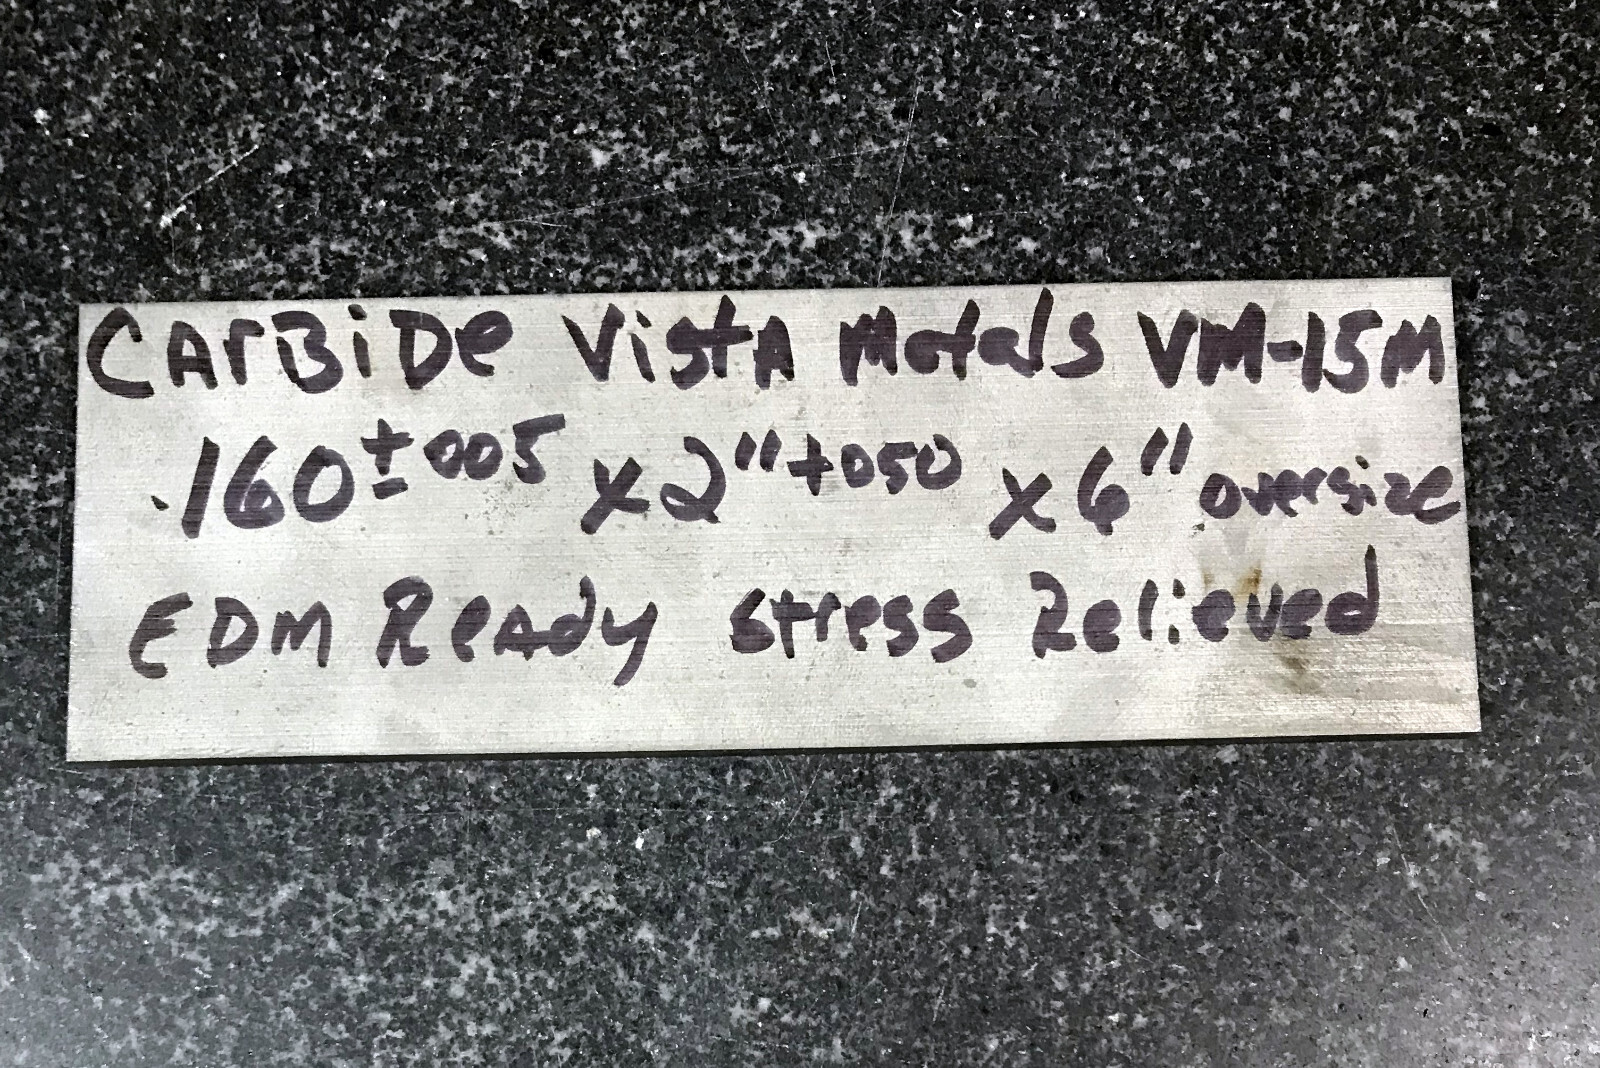 CArBiDe VistA Metals VM-15M
.160 ± 005 x 2" +050 x 6" oversize
EDM ReAdy stress Relieved